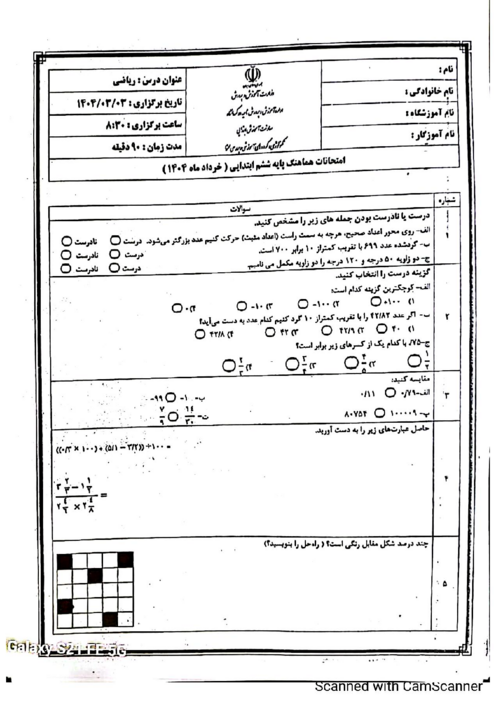 نام :
نام خانوادگی :
نام آموزشگاه :
نام آموزگار :
عنوان درس : ریاضی
تاریخ برگزاری : ۱۴۰۴/۰۳/۰۳
ساعت برگزاری : ۸:۳۰
مدت زمان : ۹۰ دقیقه
امتحانات هماهنگ پایه ششم ابتدایی ( خرداد ماه ۱۴۰۴ )
شماره
سوالات
۱
درست یا نادرست بودن جمله های زیر را مشخص کنید.
الف- روی محور اعداد صحیح، هرچه به سمت راست (اعداد مثبت) حرکت کنیم عدد بزرگتر می‌شود. درست نادرست
ب- گردشده عدد ۶۹۹ با تقریب کمتراز ۱۰ برابر ۷۰۰ است. درست نادرست
ج- دو زاویه ۵۰ درجه و ۱۲۰ درجه را دو زاویه مکمل می نامیم. درست نادرست
۲
گزینه درست را انتخاب کنید.
الف- کوچکترین گزینه کدام است:
۱) +۱۰۰ ۲) -۱۰۰ ۳) -۱۰ ۴) ۰
ب- اگر عدد ۴۲/۸۲ را با تقریب کمتراز ۱۰ گرد کنیم کدام عدد به دست می‌آید؟
۱) ۴۰ ۲) ۴۲/۹ ۳) ۴۲ ۴) ۴۲/۸
ج- ۰/۷۵ با کدام یک از کسرهای زیر برابر است؟
۳
مقایسه کنید:
الف- ۰/۷۹ ۰/۱۱ ب- -۱ -۹۹
پ- ۱۰۰۰۰۹ ۸۰۷۵۴ ت- ۱۴/۳۰ ۷/۹
۴
حاصل عبارت‌های زیر را به دست آورید.
((۰/۳ × ۱۰۰) + (۵/۱ − ۳/۲)) ÷ ۱۰۰ =
۵
چند درصد شکل مقابل رنگی است؟ ( راه حل را بنویسید؟)
Galaxy S21 FE 5G
Scanned with CamScanner